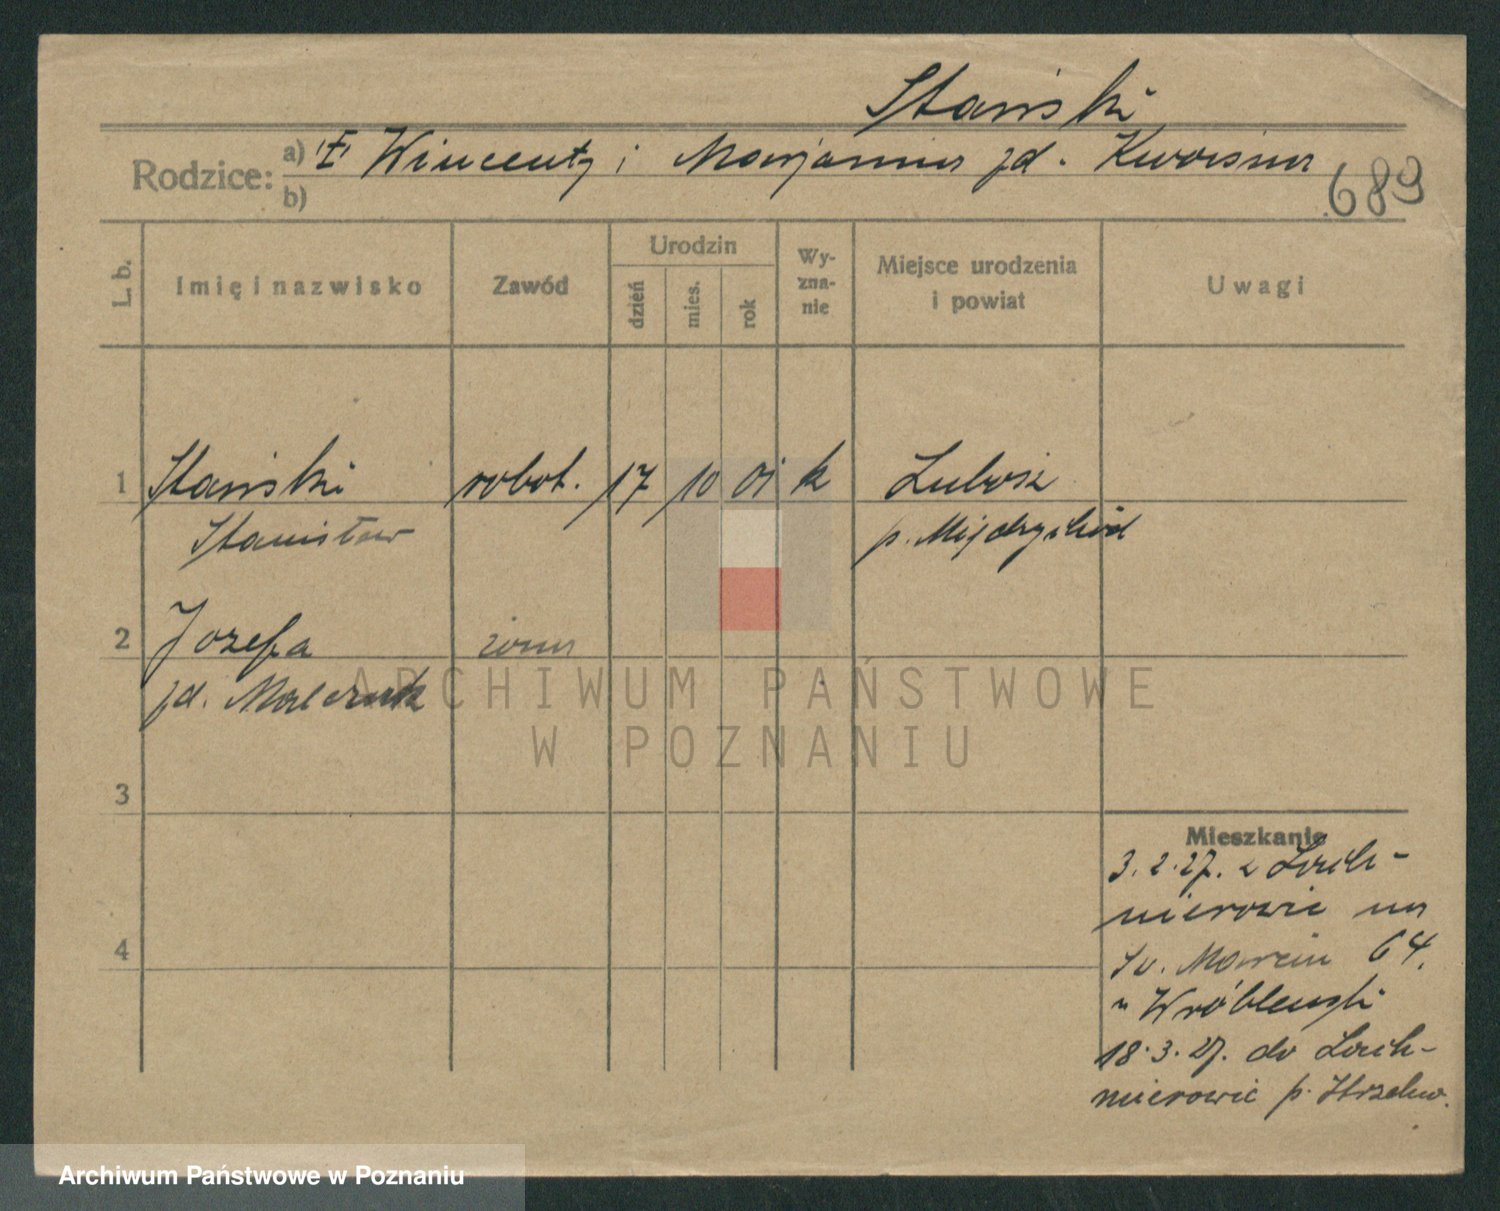 Stański
Rodzice: a) Wincenty i Marjanna zd. Kwaśna
b)
689
L. b.
Imię i nazwisko
Zawód
Urodzin
dzień
mies.
rok
Wy-
zna-
nie
Miejsce urodzenia
i powiat
Uwagi
1 Stański robot. 17 10 01 k Lubosz
Stanisław p. Międzychód
2 Józefa żona
zd. Malczak
ARCHIWUM PAŃSTWOWE
W POZNANIU
3
4
Mieszkanie
3.2.27. z Loch-
mierowic na
Św. Marcin 64.
u Wróblewski
18.3.27. do Loch-
mierowic p. Strzelno.
Archiwum Państwowe w Poznaniu